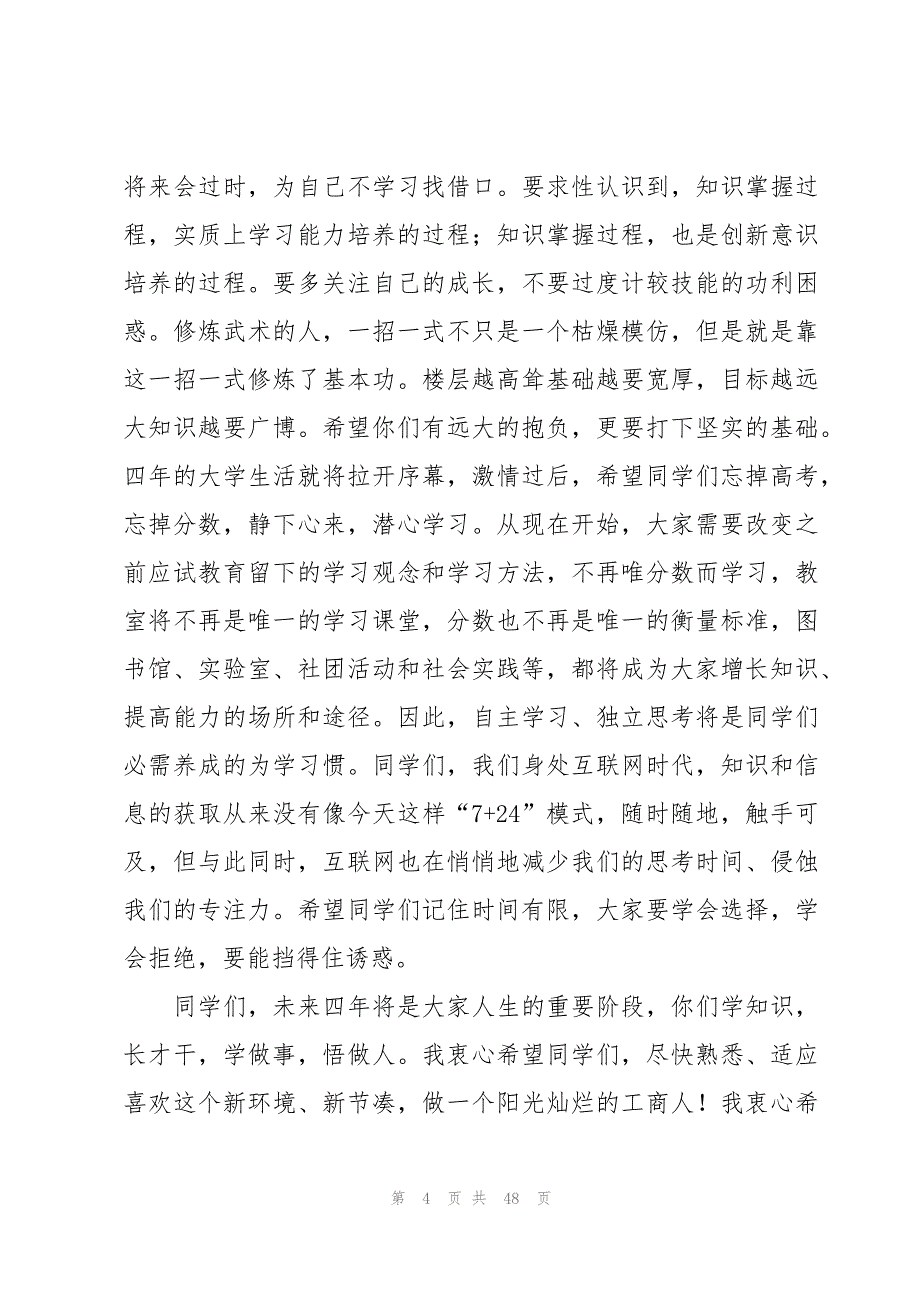 将来会过时，为自己不学习找借口。要求性认识到，知识掌握过
程，实质上学习能力培养的过程；知识掌握过程，也是创新意识
培养的过程。要多关注自己的成长，不要过度计较技能的功利困
惑。修炼武术的人，一招一式不只是一个枯燥模仿，但是就是靠
这一招一式修炼了基本功。楼层越高耸基础越要宽厚，目标越远
大知识越要广博。希望你们有远大的抱负，更要打下坚实的基础。
四年的大学生活就将拉开序幕，激情过后，希望同学们忘掉高考，
忘掉分数，静下心来，潜心学习。从现在开始，大家需要改变之
前应试教育留下的学习观念和学习方法，不再唯分数而学习，教
室将不再是唯一的学习课堂，分数也不再是唯一的衡量标准，图
书馆、实验室、社团活动和社会实践等，都将成为大家增长知识、
提高能力的场所和途径。因此，自主学习、独立思考将是同学们
必需养成的为学习惯。同学们，我们身处互联网时代，知识和信
息的获取从来没有像今天这样“7+24”模式，随时随地，触手可
及，但与此同时，互联网也在悄悄地减少我们的思考时间、侵蚀
我们的专注力。希望同学们记住时间有限，大家要学会选择，学
会拒绝，要能挡得住诱惑。
同学们，未来四年将是大家人生的重要阶段，你们学知识，
长才干，学做事，悟做人。我衷心希望同学们，尽快熟悉、适应
喜欢这个新环境、新节凑，做一个阳光灿烂的工商人！我衷心希
第 4 页 共 48 页